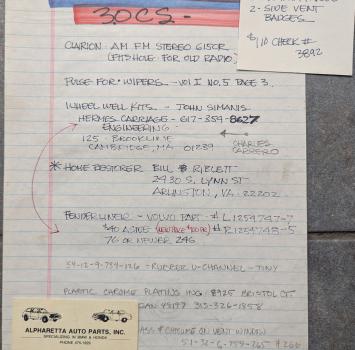 2 - SIDE VENT
BADGES
$110 CHECK #
3892
30CS -
CLARION - AM FM STEREO 615CR
(FITS HOLE FOR OLD RADIO)
FUSE FOR WIPERS - VOL I NO. 5 PAGE 3.
WHEEL WELL KITS - JOHN SIMANIS
HERMES CARRIAGE - 617-359-8627
ENGINEERING
125 - BROOKLINE
CAMBRIDGE, MA 01239
CHARLES
* HOME RESTORER BILL RIBLETT
2430 S. LYNN ST
ARLINGTON, VA. 22202
FENDER LINER - VOLVO PART # L1254747-7
$40 ASIDE # R1254748-5
76 OR NEWER 245
54-12-9-734-126 - RUBBER U-CHANNEL - TINY
PLASTIC CHROME PLATING ING. 8925 BRISTOL CT.
313-326-1858
& CHROME ON VENT WINDOW
ALPHARETTA AUTO PARTS, INC.
SPECIALIZING IN BMW & HONDA